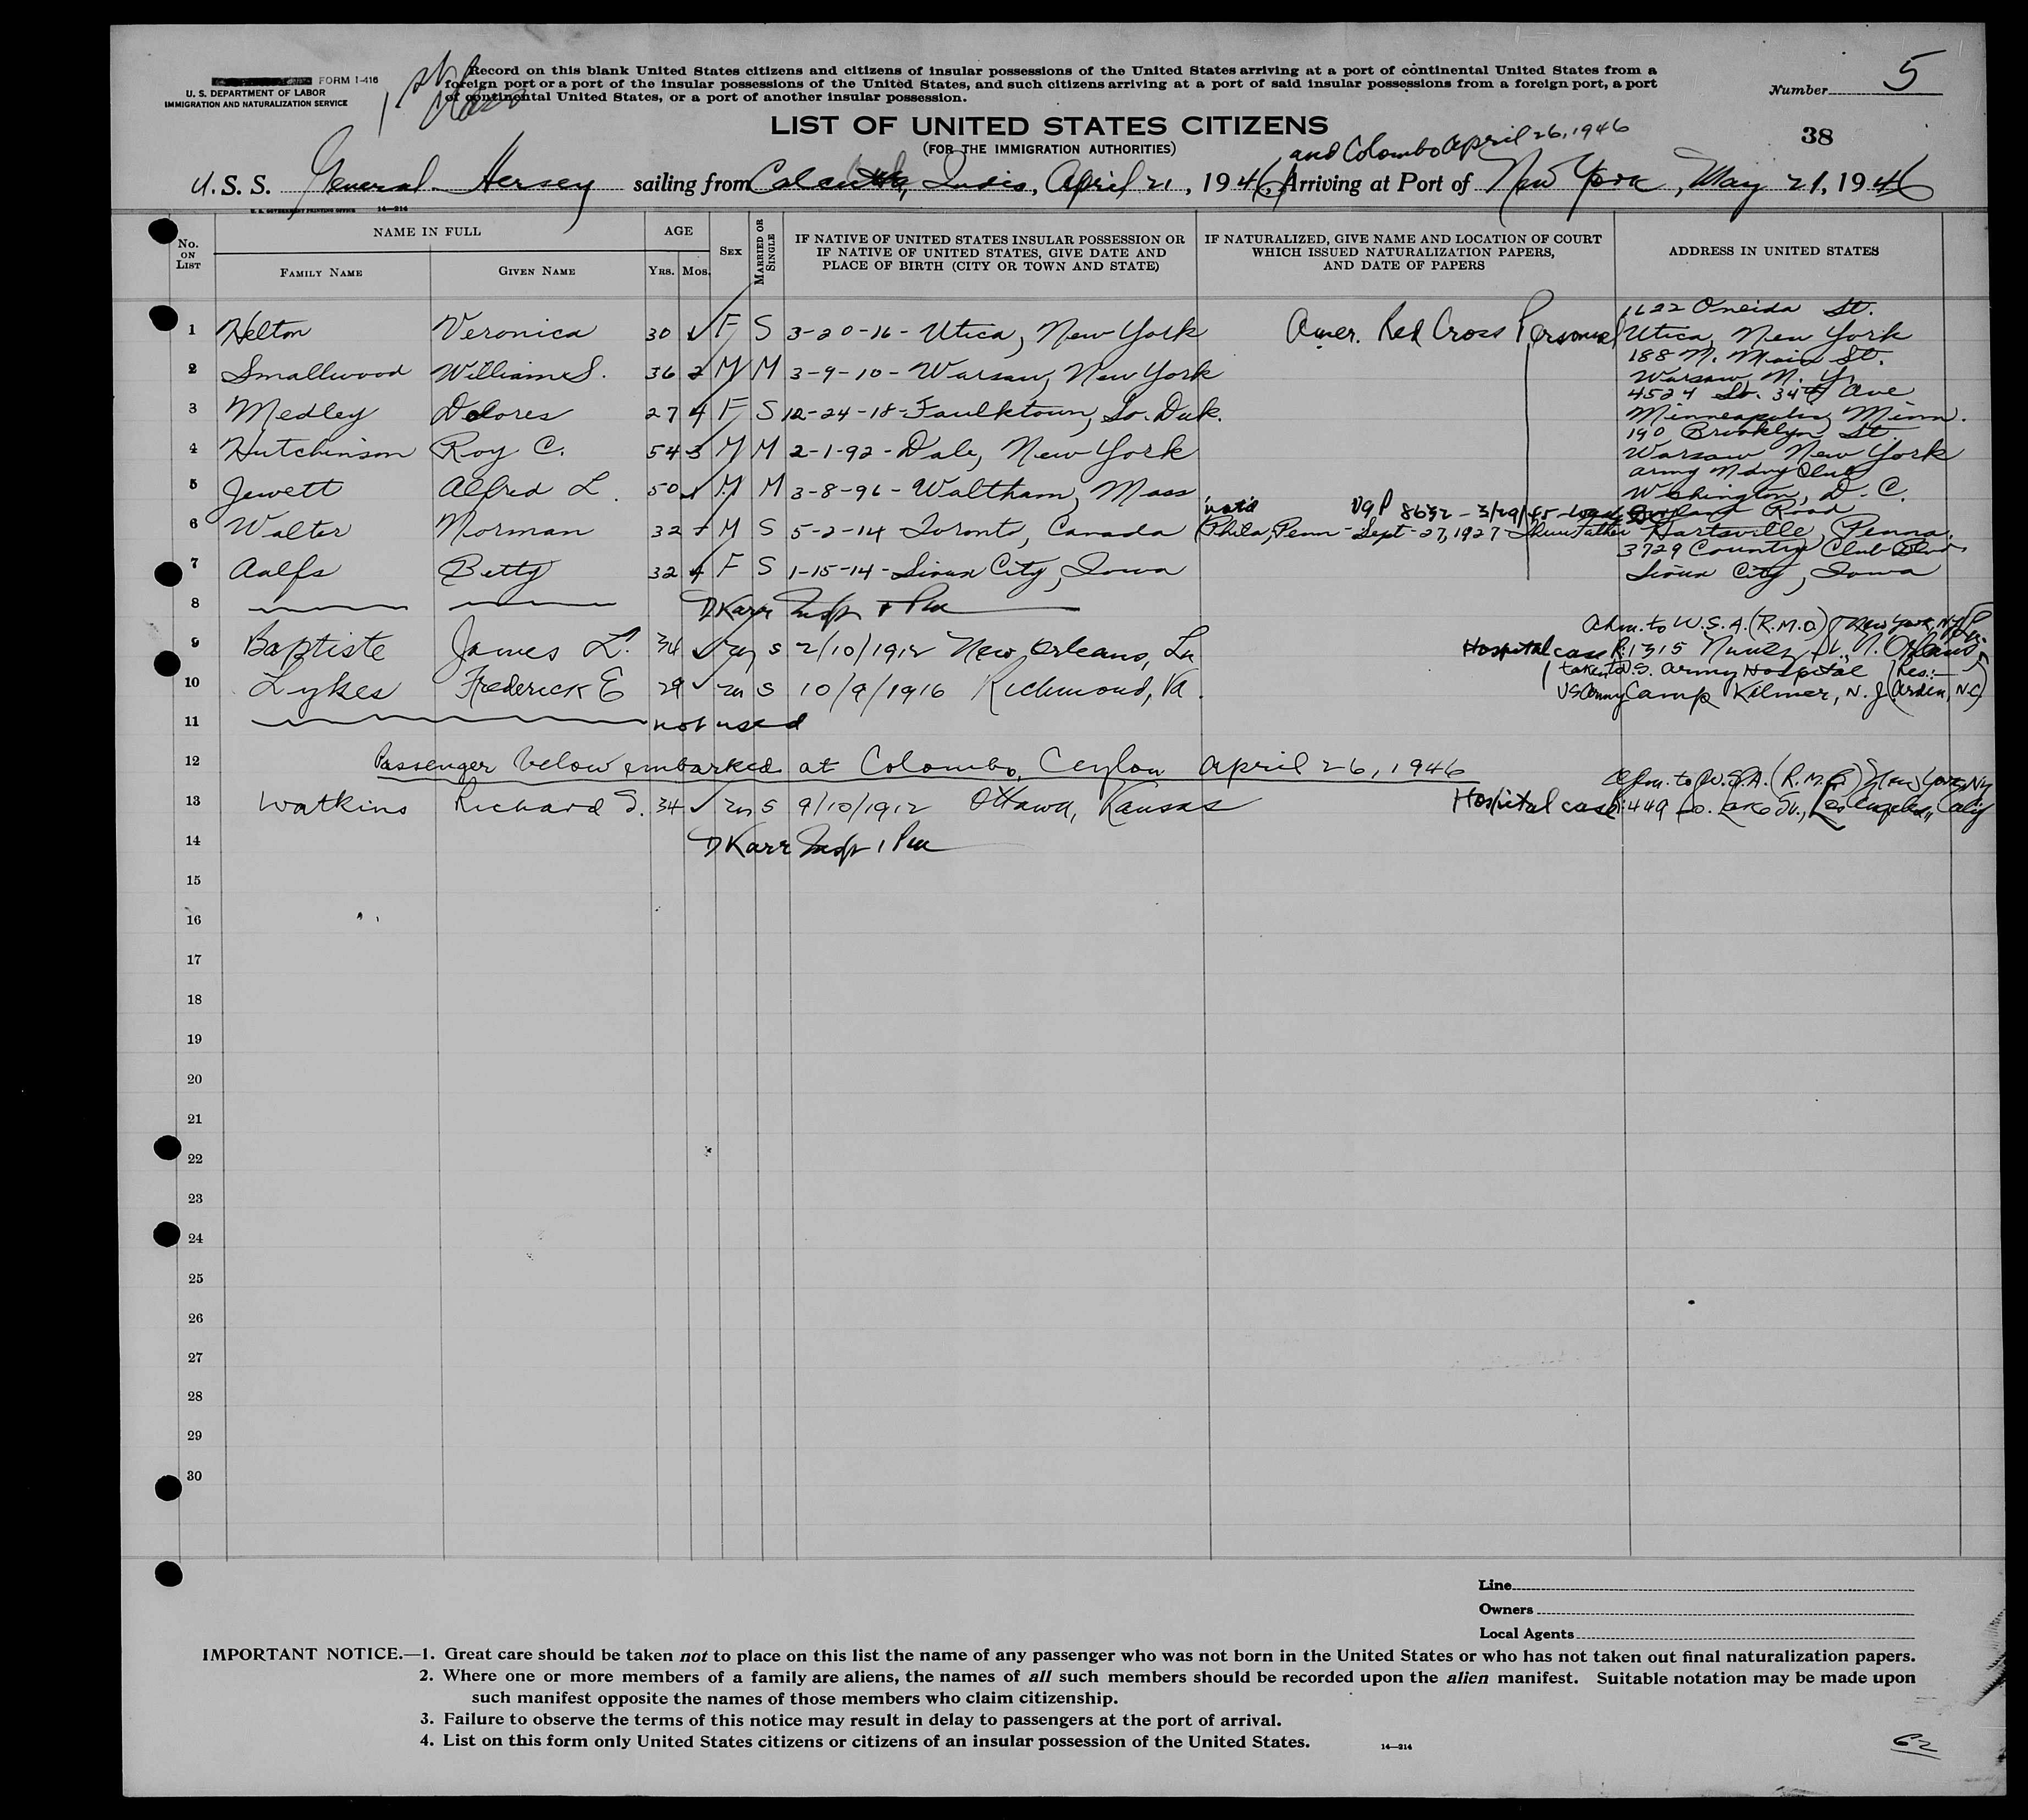 FORM I-416
U. S. DEPARTMENT OF LABOR
IMMIGRATION AND NATURALIZATION SERVICE
1st Class
Record on this blank United States citizens and citizens of insular possessions of the United States arriving at a port of continental United States from a
foreign port or a port of the insular possessions of the United States, and such citizens arriving at a port of said insular possessions from a foreign port, a port
of continental United States, or a port of another insular possession.
Number 5
LIST OF UNITED STATES CITIZENS
(FOR THE IMMIGRATION AUTHORITIES)
38
and Colombo April 26, 1946
U. S. S. General Hersey sailing from Calcutta, India, April 21, 1946, Arriving at Port of New York, May 21, 1946
U. S. GOVERNMENT PRINTING OFFICE 14—214
No. ON LIST
NAME IN FULL
FAMILY NAME
GIVEN NAME
AGE
YRS. MOS.
SEX
MARRIED OR SINGLE
IF NATIVE OF UNITED STATES INSULAR POSSESSION OR
IF NATIVE OF UNITED STATES, GIVE DATE AND
PLACE OF BIRTH (CITY OR TOWN AND STATE)
IF NATURALIZED, GIVE NAME AND LOCATION OF COURT
WHICH ISSUED NATURALIZATION PAPERS,
AND DATE OF PAPERS
ADDRESS IN UNITED STATES
1622 Oneida St.
1 Helton Veronica 30 F S 3-20-16 - Utica, New York Amer. Red Cross Personnel Utica, New York
188 N. Main St.
2 Smallwood William S. 36 2 M M 3-9-10 - Warsaw, New York Warsaw, N. Y.
4524 So. 34th Ave
3 Medley Dolores 27 4 F S 12-24-18 - Faulktown, So. Dak. Minneapolis, Minn.
190 Brooklyn St.
4 Hutchinson Roy C. 54 3 M M 2-1-92 - Dale, New York Warsaw New York
Army Navy Club
5 Jewett Alfred L. 50 M M 3-8-96 - Waltham, Mass. Washington, D. C.
nat'd 8632 - 3/29/45 Road
6 Walter Norman 32 M S 5-2-14 Toronto, Canada Phila, Penn - Sept - 27, 1927 - Father Hartsville, Penna.
3729 Country Club Blvd.
7 Aalfs Betty 32 4 F S 1-15-14 - Sioux City, Iowa Sioux City, Iowa
8 D Karr Insp
Adm. to W.S.A. (R.M.O) New York, N.Y.
9 Baptiste James L. 34 m S 2/10/1912 New Orleans, La Hospital case 1315 St., N. Orleans
taken to U.S. Army Hospital (Res.:—
10 Lykes Frederick E 29 m S 10/9/1916 Richmond, Va. US Army Camp Kilmer, N. J. Arden, N.C.)
11 not used
12 Passenger below embarked at Colombo, Ceylon April 26, 1946
Adm. to W.S.A. (R.M.O) New York, NY
13 Watkins Richard S. 34 m S 9/10/1912 Ottawa, Kansas Hospital case 1449 So. Lake St., Los Angeles, Calif
14 D Karr Insp
15
16
17
18
19
20
21
22
23
24
25
26
27
28
29
30
Line
Owners
Local Agents
IMPORTANT NOTICE.—1. Great care should be taken not to place on this list the name of any passenger who was not born in the United States or who has not taken out final naturalization papers.
2. Where one or more members of a family are aliens, the names of all such members should be recorded upon the alien manifest. Suitable notation may be made upon
such manifest opposite the names of those members who claim citizenship.
3. Failure to observe the terms of this notice may result in delay to passengers at the port of arrival.
4. List on this form only United States citizens or citizens of an insular possession of the United States.
14—214
62